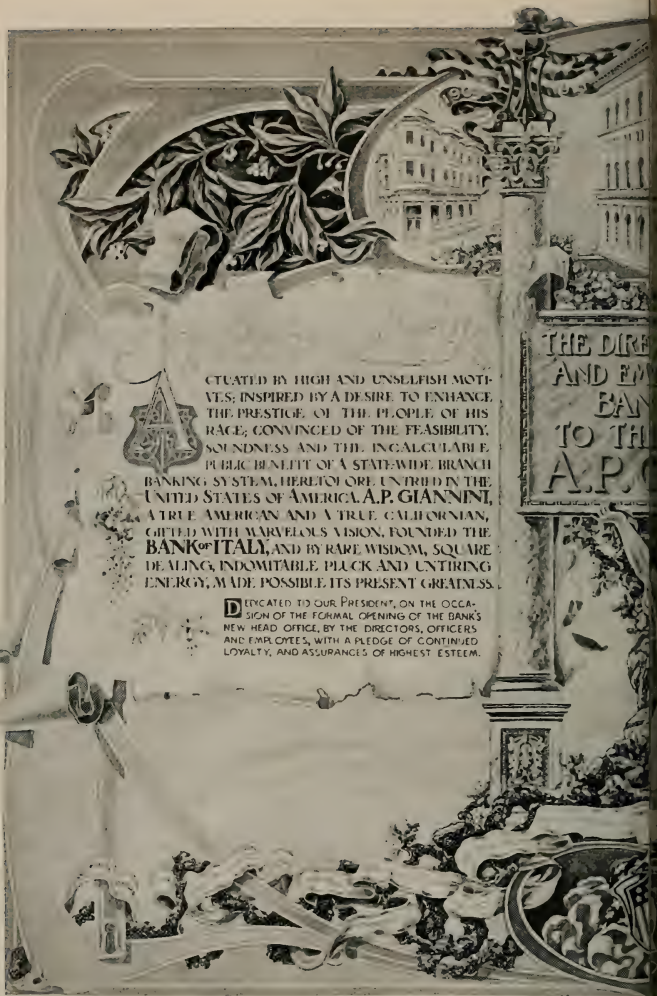 ACTUATED BY HIGH AND UNSELFISH MOTI-
VES; INSPIRED BY A DESIRE TO ENHANCE
THE PRESTIGE OF THE PEOPLE OF HIS
RACE; CONVINCED OF THE FEASIBILITY,
SOUNDNESS AND THE INCALCULABLE
PUBLIC BENEFIT OF A STATEWIDE BRANCH
BANKING SYSTEM, HERETOFORE UNTRIED IN THE
UNITED STATES OF AMERICA. A.P. GIANNINI,
A TRUE AMERICAN AND A TRUE CALIFORNIAN,
GIFTED WITH MARVELOUS VISION, FOUNDED THE
BANK OF ITALY, AND BY RARE WISDOM, SQUARE
DEALING, INDOMITABLE PLUCK AND UNTIRING
ENERGY, MADE POSSIBLE ITS PRESENT GREATNESS.
DEDICATED TO OUR PRESIDENT, ON THE OCCA-
SION OF THE FORMAL OPENING OF THE BANK'S
NEW HEAD OFFICE, BY THE DIRECTORS, OFFICERS
AND EMPLOYEES, WITH A PLEDGE OF CONTINUED
LOYALTY, AND ASSURANCES OF HIGHEST ESTEEM.
THE DIRE
AND EM
BAN
TO TH
A.P. G